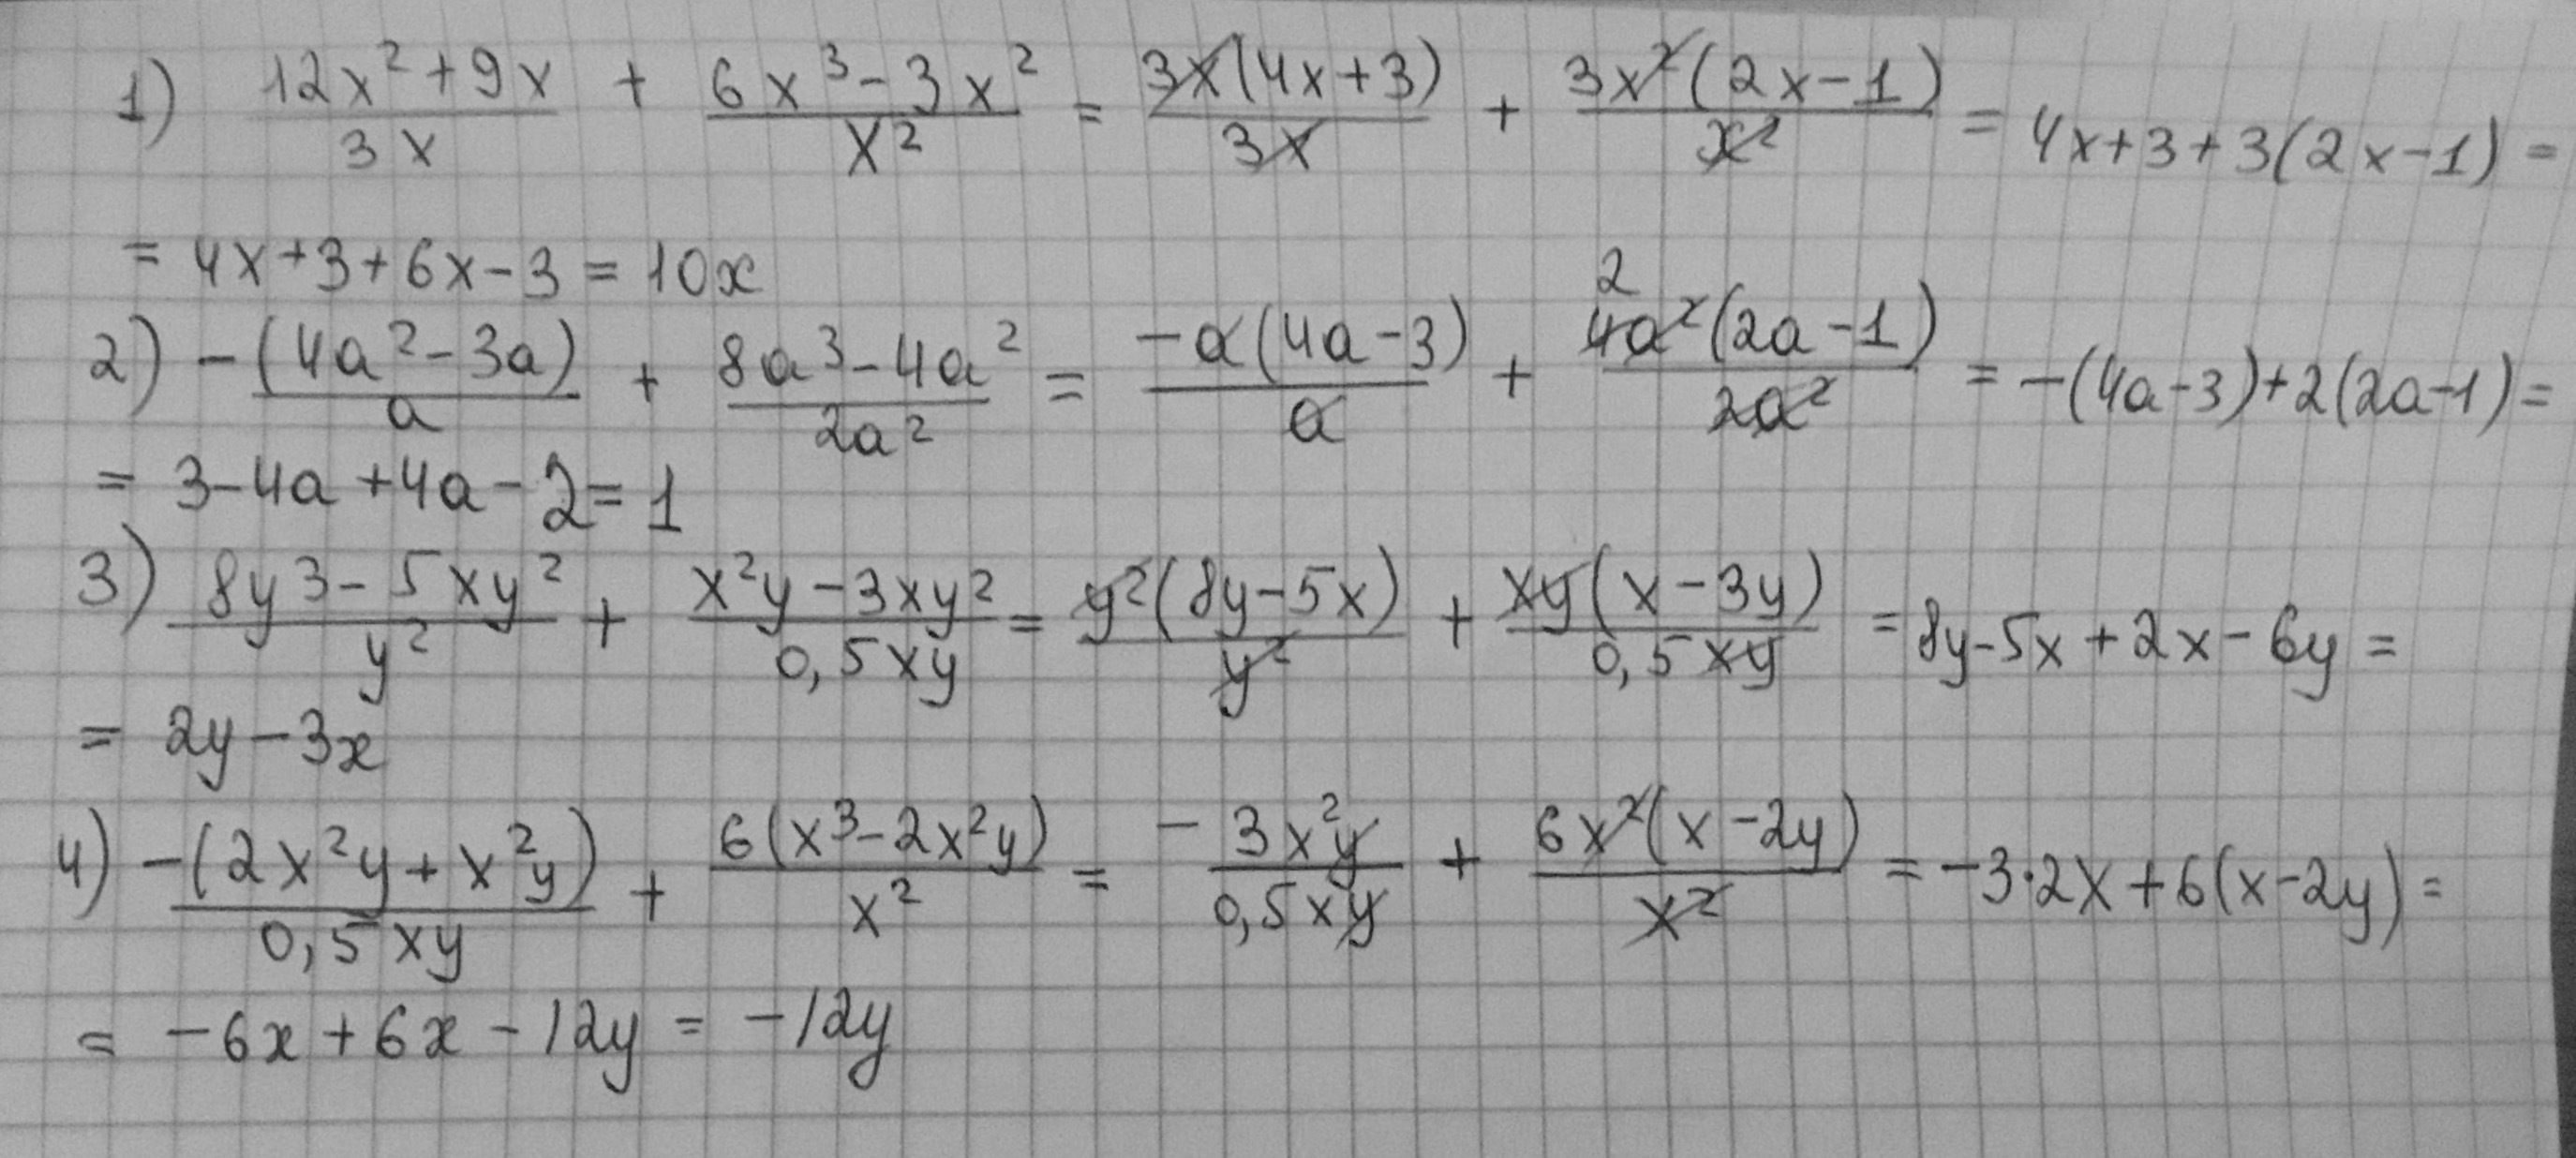 1) (12x²+9x)/(3x) + (6x³-3x²)/(x²) = (3x(4x+3))/(3x) + (3x²(2x-1))/(x²) = 4x+3+3(2x-1) =
= 4x+3+6x-3 = 10x
2) -(4a²-3a)/a + (8a³-4a²)/(2a²) = (-a(4a-3))/a + (4a²(2a-1))/(2a²) 2 = -(4a-3)+2(2a-1) =
= 3-4a+4a-2 = 1
3) (8y³-5xy²)/(y²) + (x²y-3xy²)/(0,5xy) = (y²(8y-5x))/(y²) + (xy(x-3y))/(0,5xy) = 8y-5x+2x-6y =
= 2y-3x
4) -(2x²y+x²y)/(0,5xy) + (6(x³-2x²y))/(x²) = -(3x²y)/(0,5xy) + (6x²(x-2y))/(x²) = -3·2x+6(x-2y) =
= -6x+6x-12y = -12y